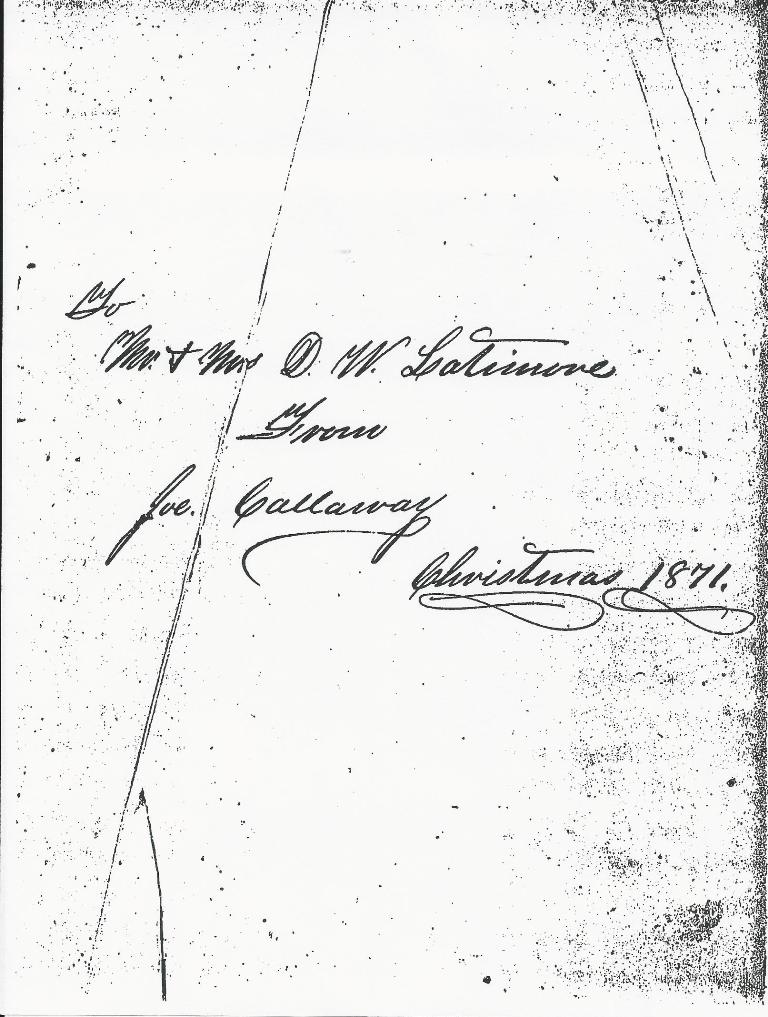 To
Mr. & Mrs D. W. Latimore
From
Joe. Callaway
Christmas 1871.